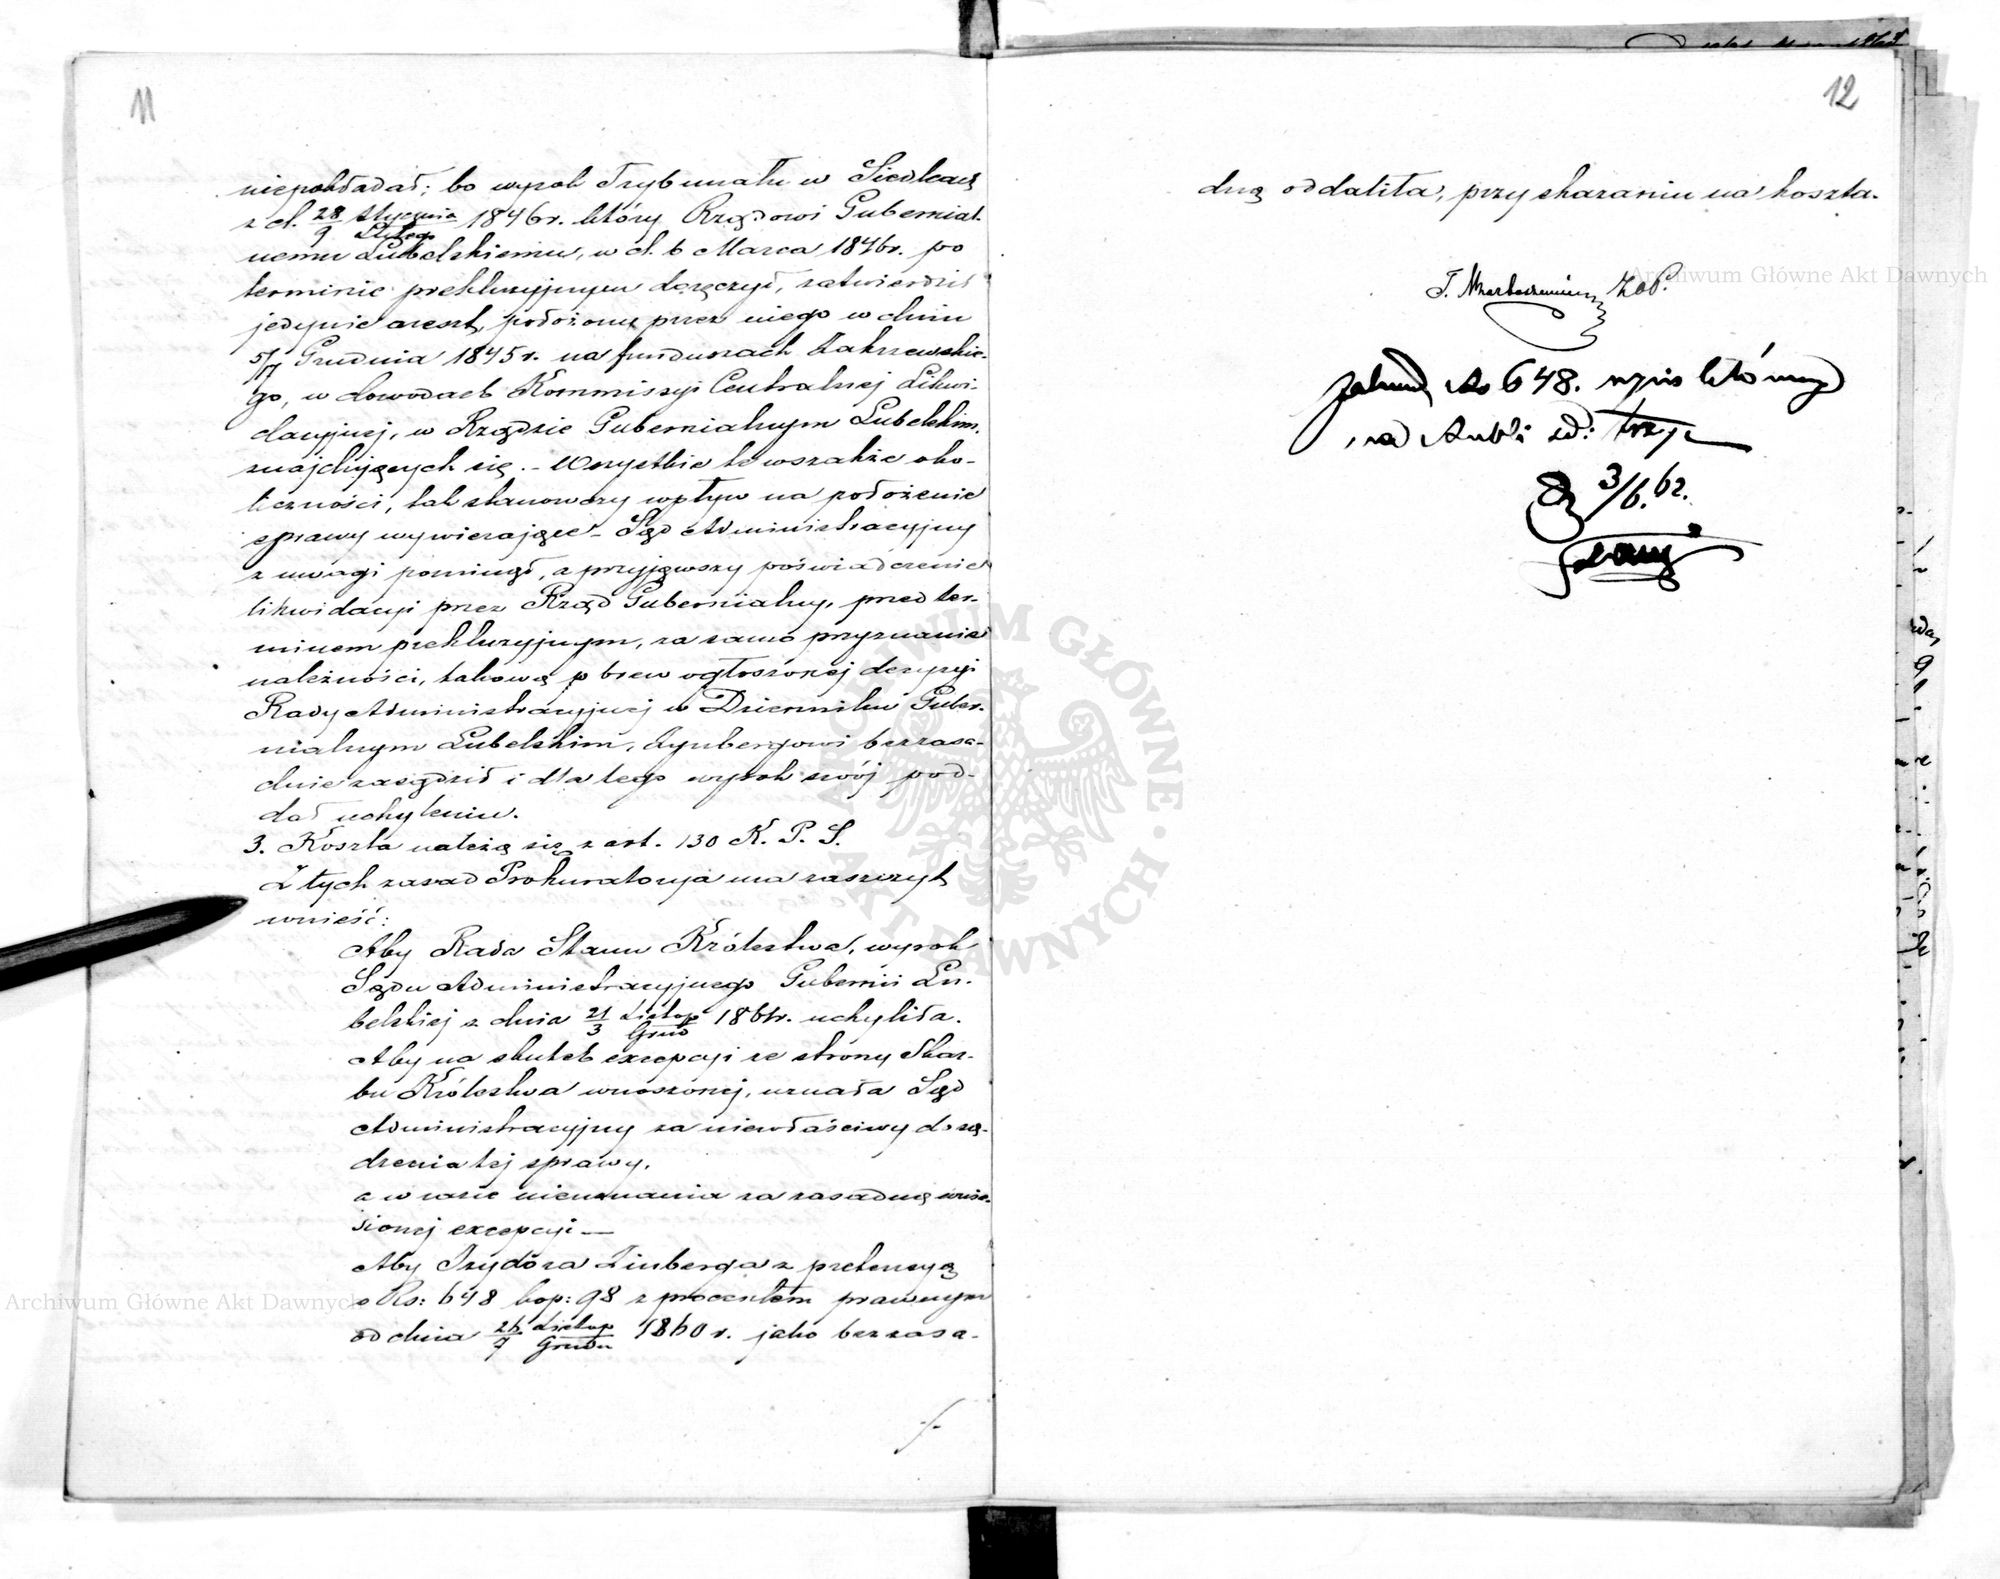 11
niepokładał; bo wyrok Trybunału w Siedlcach
z d. 28/9 Stycznia/Lutego 1846 r. który Rządowi Gubernial-
nemu Lubelskiemu, w d. 6 Marca 1846 r. po
terminie prekluzyjnym doręczył, zatwierdził
jedynie areszt, położony przez niego w dniu
5/17 Grudnia 1845 r. na funduszach Zakrzewskie-
go, w dowodach Kommissyi Centralnej Likwi-
dacyjnej, w Rządzie Gubernialnym Lubelskim,
znajdujących się. – Wszystkie te wszakże oko-
liczności, tak stanowczy wpływ na położenie
sprawy wywierające – Sąd Administracyjny
z uwagi pominął, a przyjąwszy poświadczenie
likwidacyi przez Rząd Gubernialny, przed ter-
minem prekluzyjnym, za samo przyznanie
należności, takową wbrew ogłoszonej decyzyi
Rady Administracyjnej w Dzienniku Guber-
nialnym Lubelskim, Zynbergowi bezzasa-
dnie zasądził i dla tego wyrok swój pod-
dał uchyleniu.
3. Koszta należą się z art. 130 K. P. S.
Z tych zasad Prokuratorya ma zaszczyt
wnieść:
Aby Rada Stanu Królestwa, wyrok
Sądu Administracyjnego Gubernii Lu-
belskiej z dnia 21/3 Listop/Grud 1861 r. uchyliła.
Aby na skutek excepcyi ze strony Skar-
bu Królestwa wnoszonej, uznała Sąd
Administracyjny za niewłaściwy do są-
dzenia tej sprawy,
a w razie nieuznania za zasadną wnie-
sionej excepcyi —
Aby Izydora Zinberga z pretensyą
o Rs: 648 kop: 98 z procentem prawnym
od dnia 26/7 Listop/Grudn 1860 r. jako bezzasa-
12
dną oddaliła, przy skazaniu na koszta.
No 648.
3/6.62.
Archiwum Główne Akt Dawnych
Archiwum Główne Akt Dawnych
ARCHIWUM GŁÓWNE · AKT DAWNYCH ·